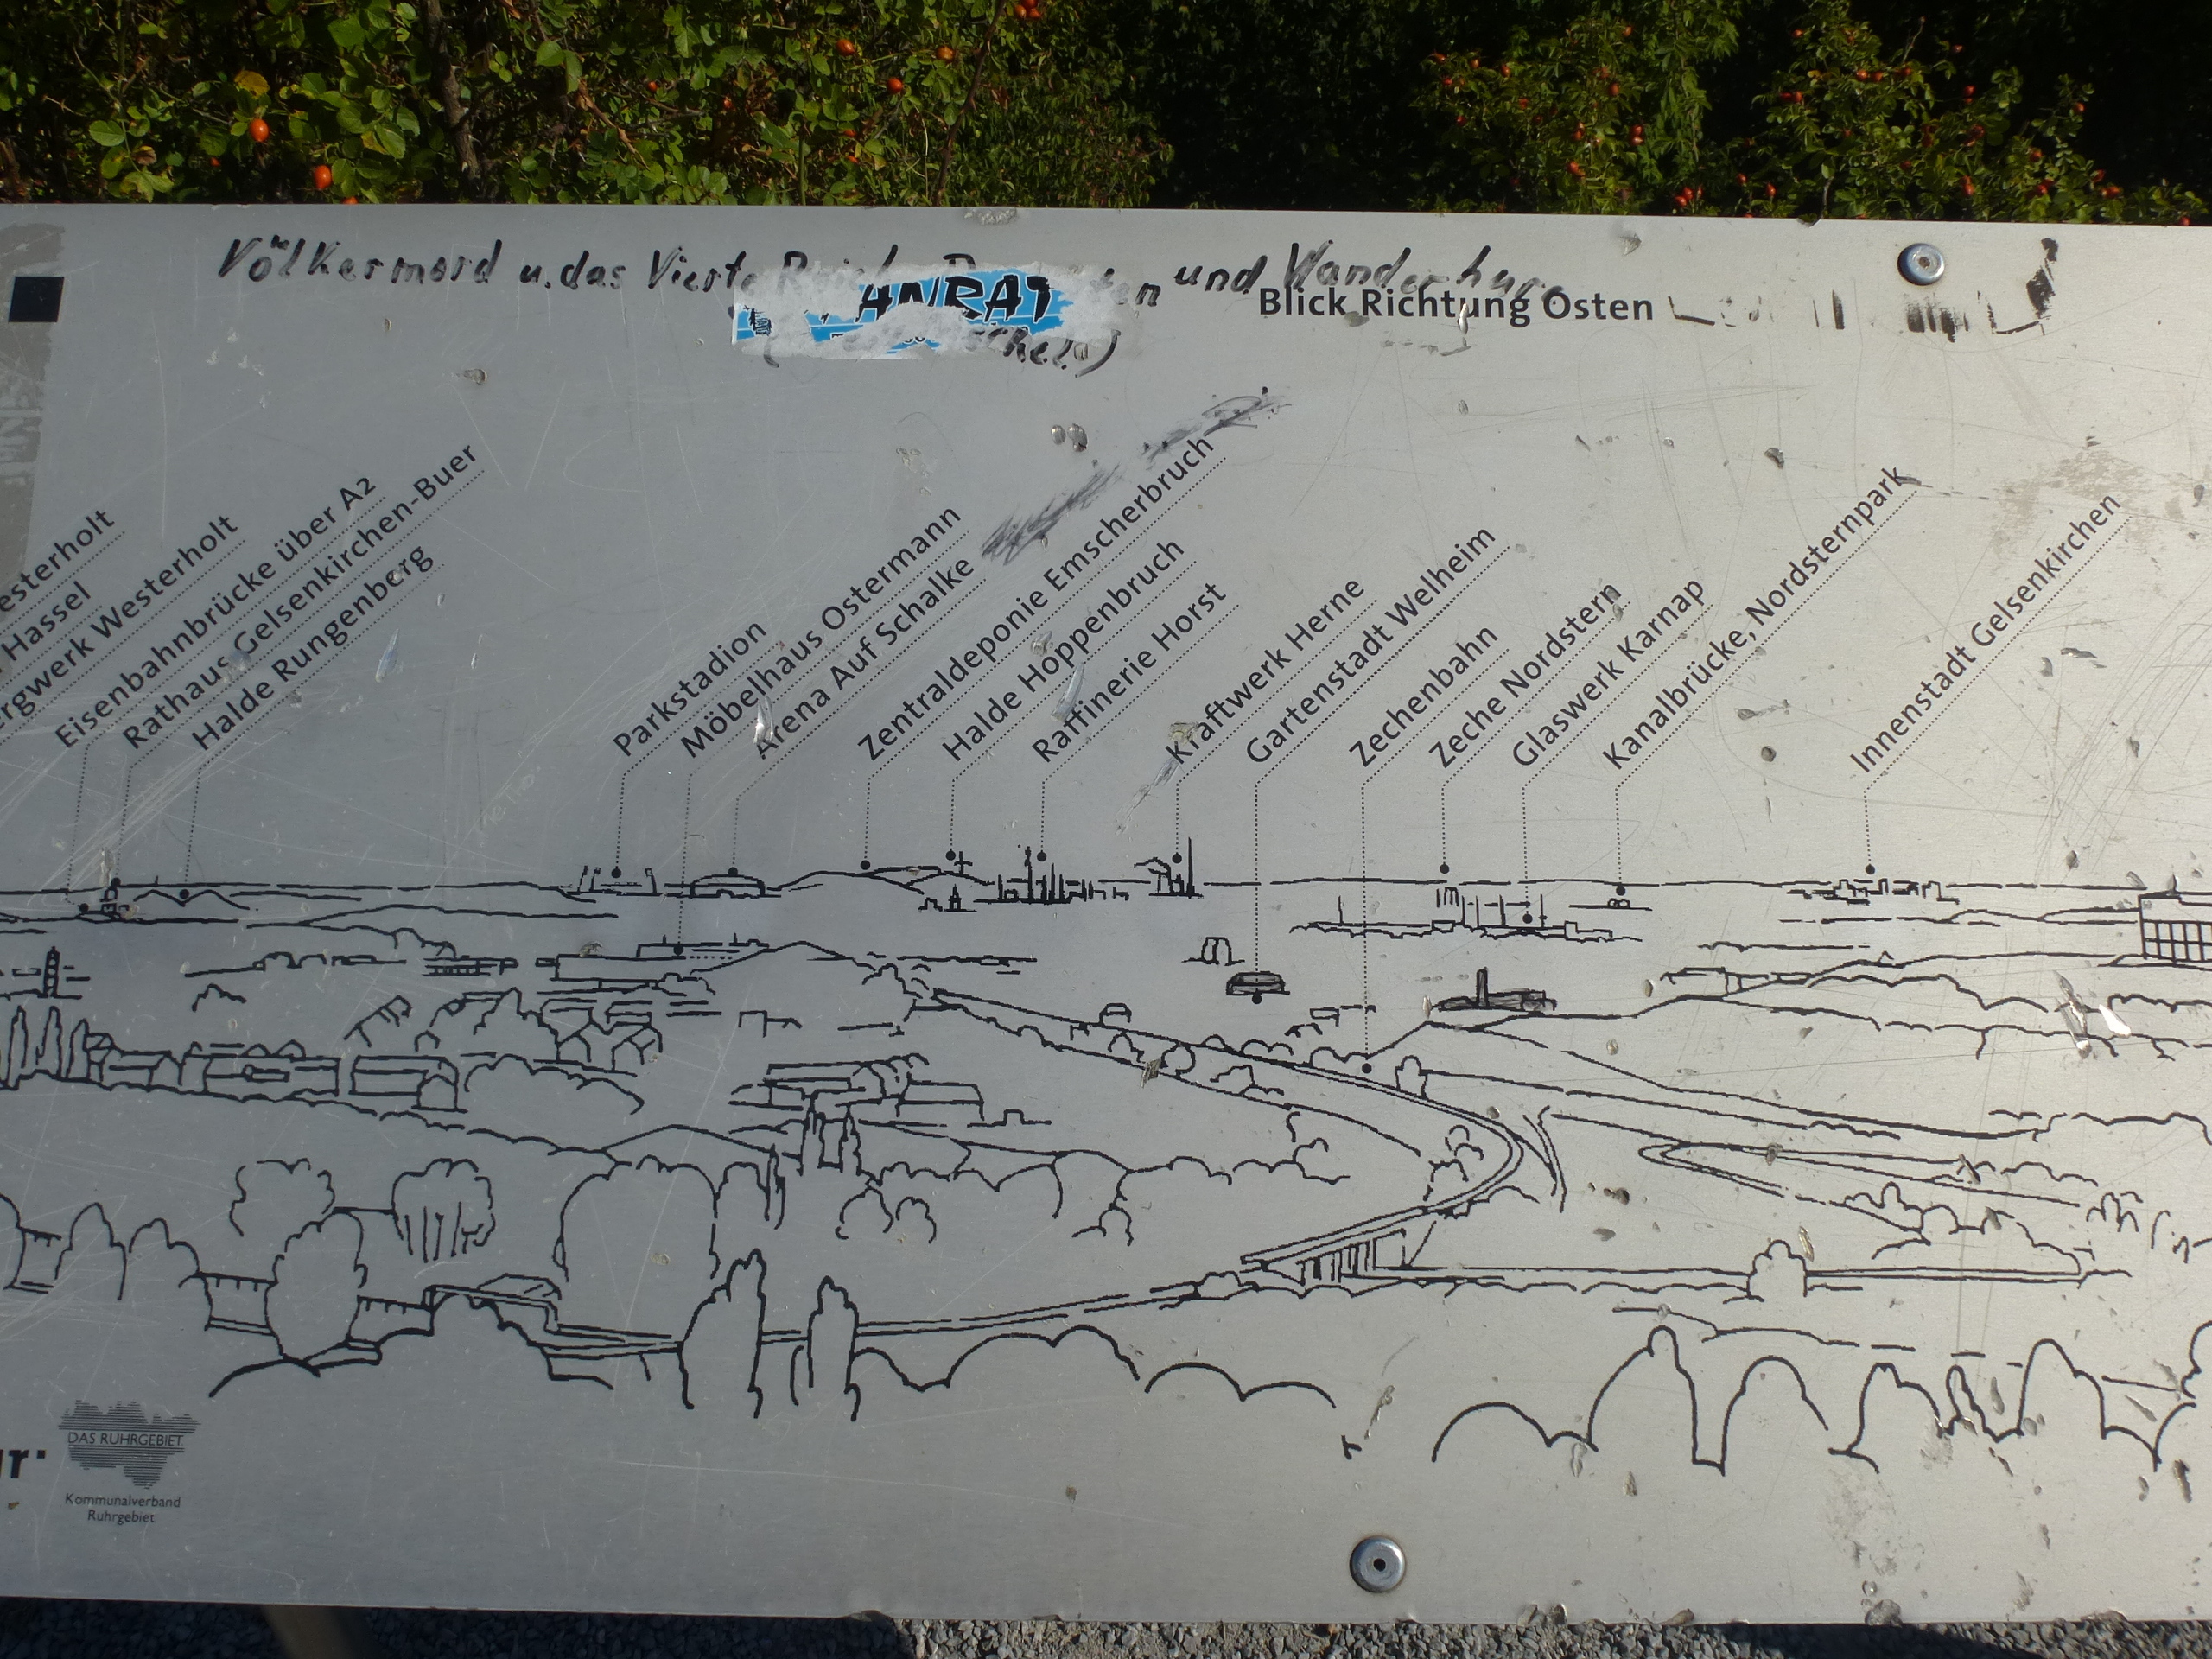 Völkermord u. das Vierte und
Blick Richtung Osten
Westerholt
Hassel
Bergwerk Westerholt
Eisenbahnbrücke über A2
Rathaus Gelsenkirchen-Buer
Halde Rungenberg
Parkstadion
Möbelhaus Ostermann
Arena Auf Schalke
Zentraldeponie Emscherbruch
Halde Hoppenbruch
Raffinerie Horst
Kraftwerk Herne
Gartenstadt Welheim
Zechenbahn
Zeche Nordstern
Glaswerk Karnap
Kanalbrücke, Nordsternpark
Innenstadt Gelsenkirchen
DAS RUHRGEBIET
Kommunalverband
Ruhrgebiet